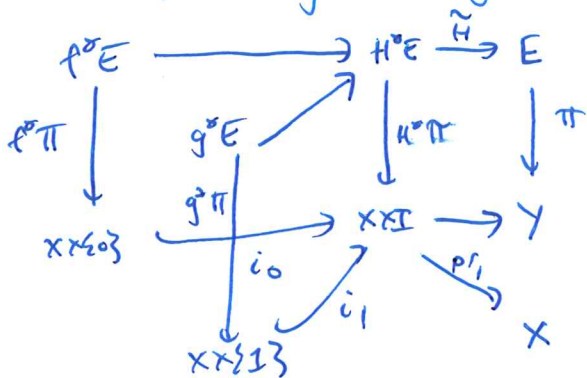 f*E H*E H̃ E
f*π g*E H*π π
g*π
X×{0} i₀ X×I Y
i₁ pr₁
X×{1} X